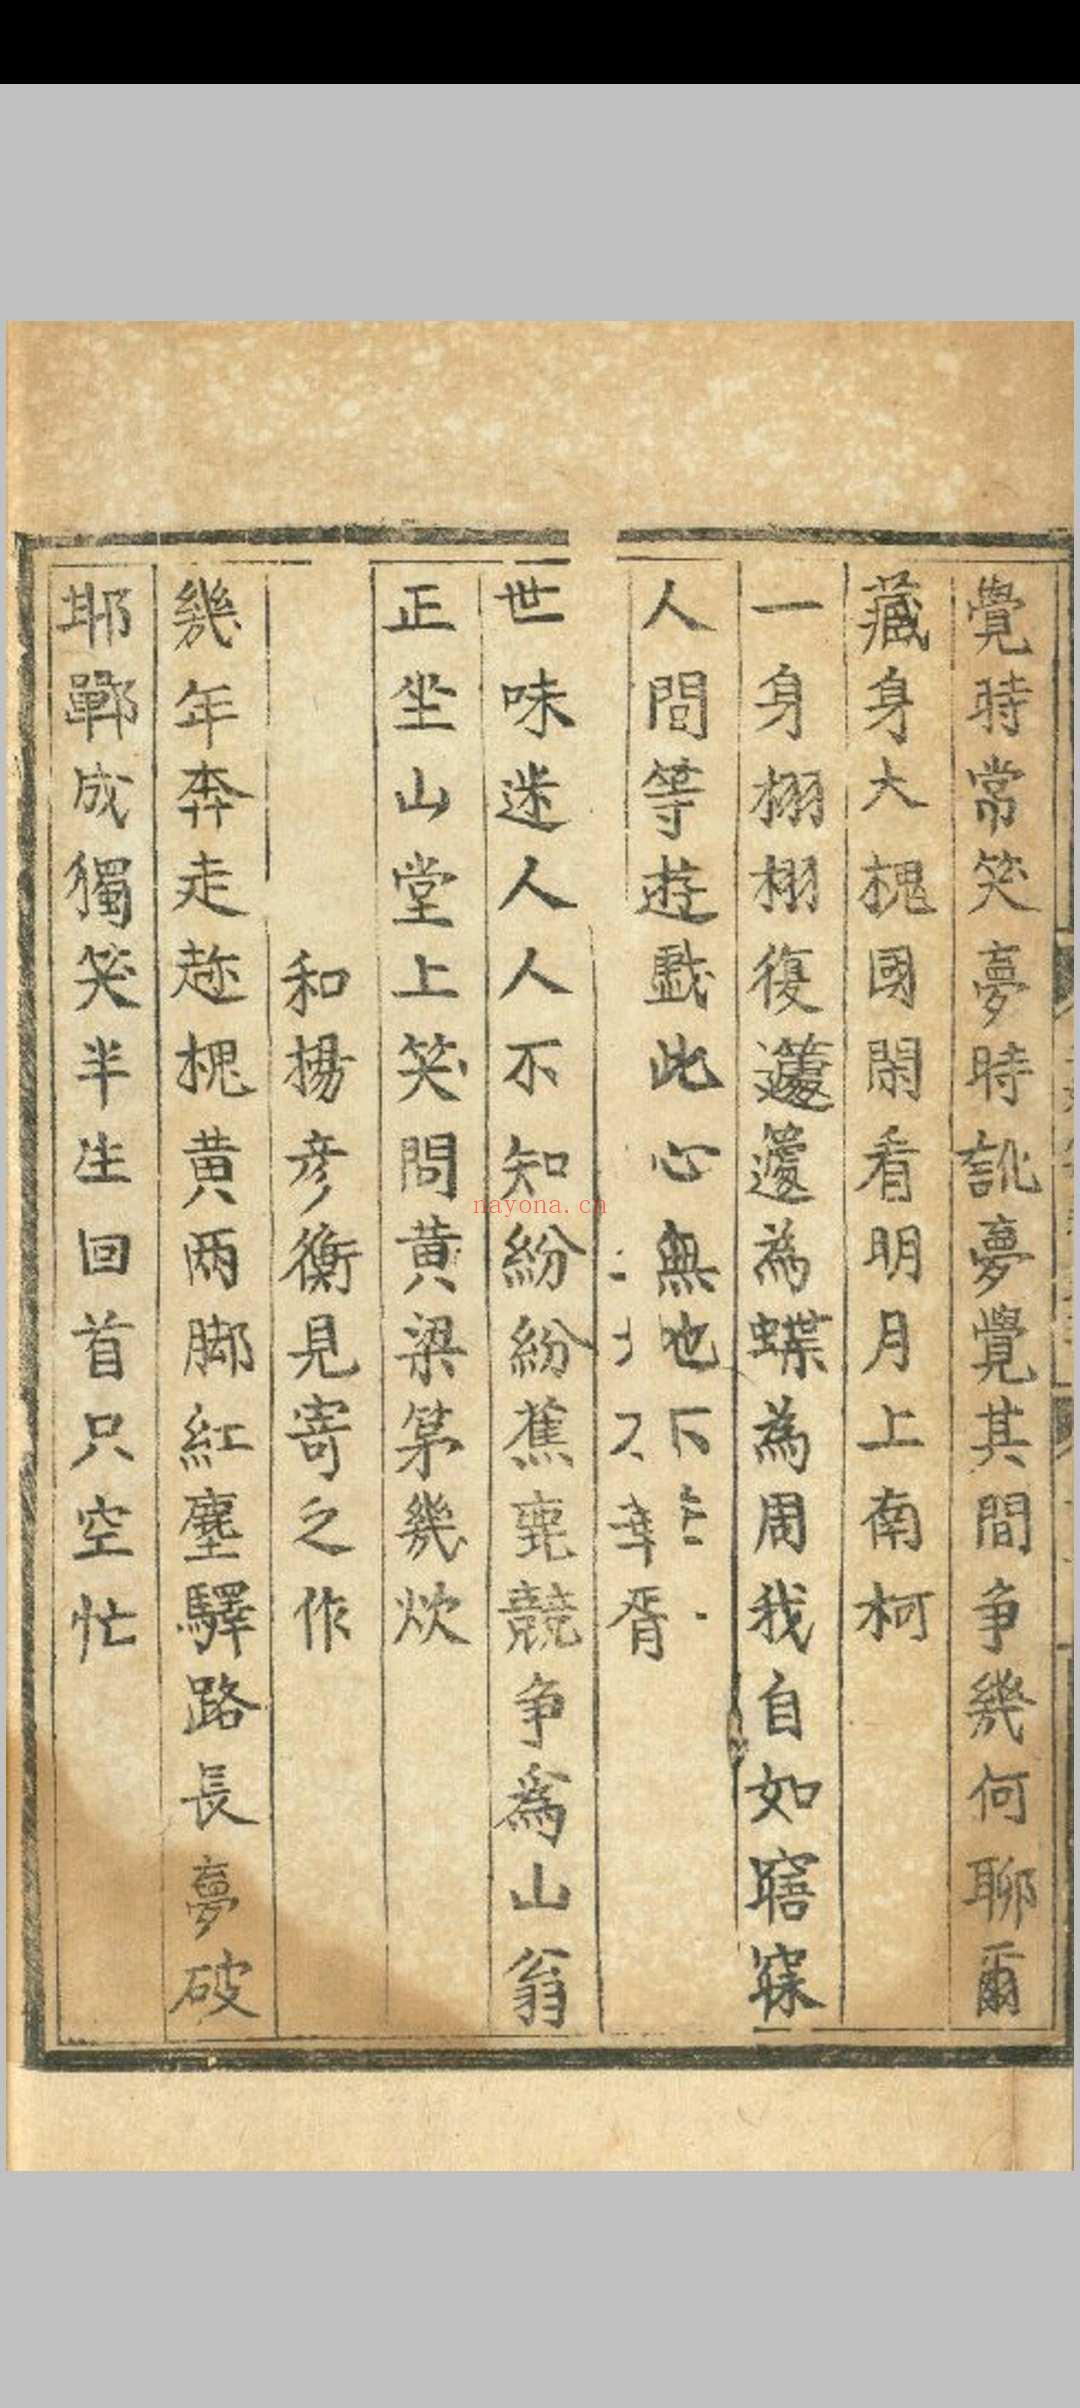 覺時常笑夢時訛夢覺其間争幾何聊爾
藏身大槐國閑看明月上南柯
一身栩栩復蘧蘧為蝶為周我自如寤寐
人間等遊戲此心無也下華胥
世味迷人人不知紛紛蕉鹿競争為山翁
正坐山堂上笑問黄粱第幾炊
和楊彦衡見寄之作
幾年奔走趂槐黄两脚紅塵驛路長夢破
邯鄲成獨笑半生回首只空忙
nayona.cn